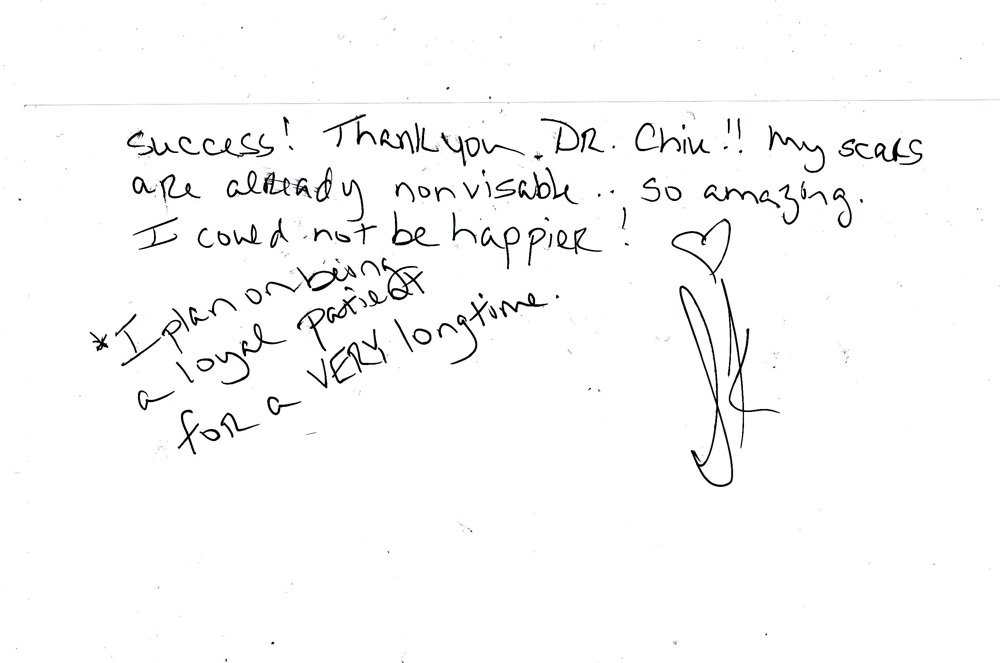 success! Thank you DR. Chiu!! My scars
are already nonvisable.. so amazing.
I could not be happier!
*I plan on being
a loyal patient
for a VERY longtime.